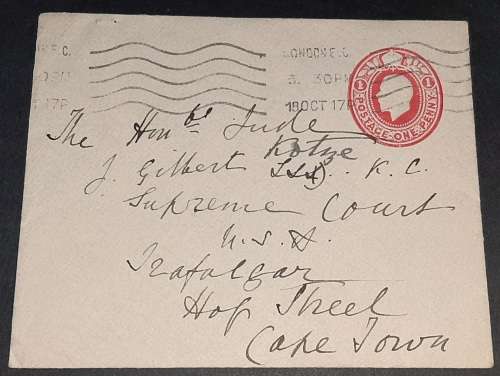 LONDON. E.C.
3. 30PM
18 OCT 17
POSTAGE · ONE PENNY
1 1
The Honble Jude
Kotze
J. Gilbert K. C.
Supreme Court
U. S. A.
Trafalgar
Hof Street
Cape Town